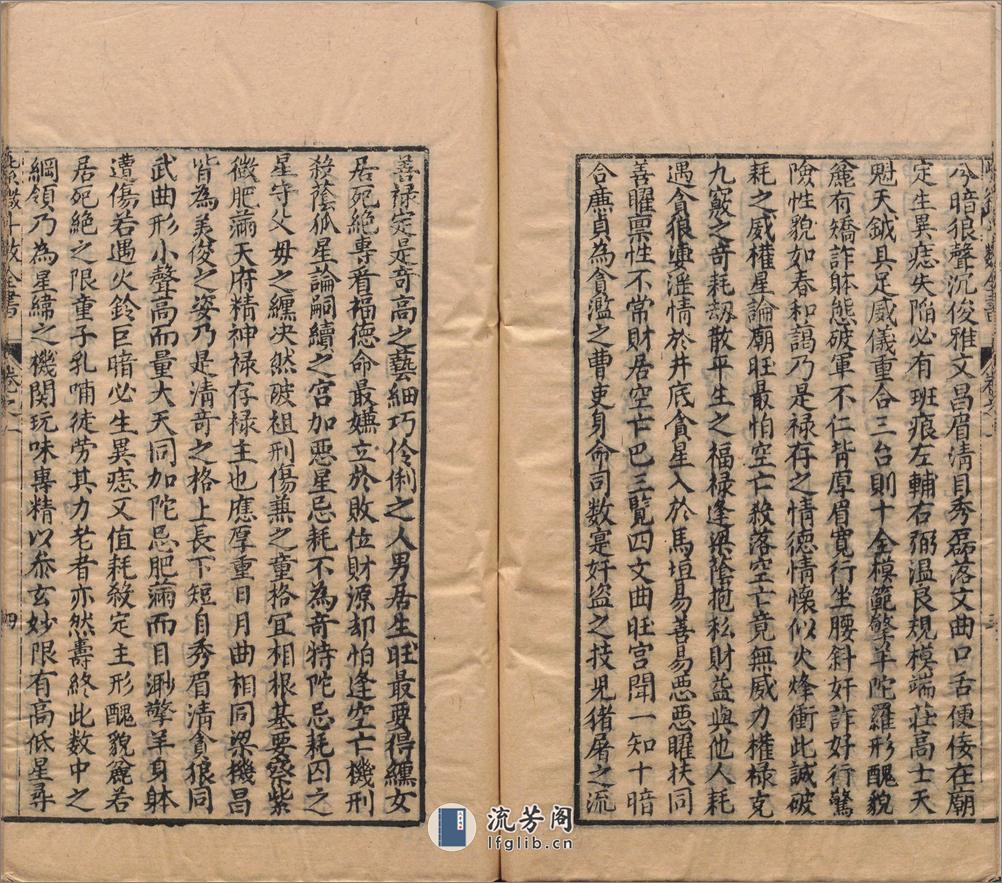 兮暗狼聲沉俊雅文昌眉清目秀磊落文曲口舌便佞在廟
定生異痣失陷必有班痕左輔右弼溫良規模端莊高士天
魁天鉞具足威儀重合三台則十全模範擎羊陀羅形醜貌
麄有矯詐體態破軍不仁背厚眉寬行坐腰斜奸詐好行驚
險性貌如春和藹乃是祿存之情德情懷似火烽衝此誠破
耗之威權星論廟旺最怕空亡殺落空亡竟無威力權祿克
九竅之奇耗刼散平生之福祿逢梁蔭抱私財益與他人耗
遇貪狼㛐淫情於井底貪星入於馬垣易善易惡惡曜扶同
善曜禀性不常財居空亡巴三覽四文曲旺宮聞一知十暗
合廉貞為貪濫之曹吏身命司數寔奸盜之技児猪屠之流
善祿定是竒高之藝細巧伶俐之人男居生旺最要得纏女
居死絶專看福德命最嫌立於敗位財源却怕逢空亡機刑
殺蔭狐星論嗣續之宮加惡星忌耗不為奇特陀忌耗囚之
星守父母之纏决然破祖刑傷兼之童格宜相根基要察紫
微肥滿天府精神祿存祿主也應厚重日月曲相同梁機昌
皆為美俊之姿乃是清奇之格上長下短目秀眉清貪狼同
武曲形小聲高而量大天同加陀忌肥滿而目渺擎羊身躰
遭傷若遇火鈴巨暗必生異痣又值耗殺定主形醜貌麄若
居死絶之限童子乳哺徒劳其力老者亦然壽終此數中之
綱領乃為星緯之機関玩味專精以叅玄妙限有高低星尋
卷之一
四
流芳阁
lfglib.cn